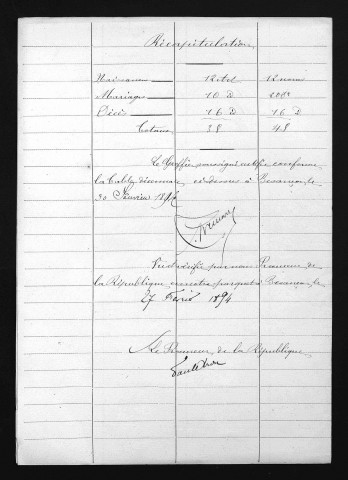 Récapitulation
Naissances 12 Act 12 noms
Mariages 10 D 20 d°
Décès 16 D 16 D
Totaux 38 48
Le Greffier soussigné certifie conforme
la Table décennale ci-dessus à Besançon, le
30 Janvier 1894
Vu et vérifié par nous Procureur de
la République en notre parquet à Besançon, le
27 Février 1894
Le Procureur de la République